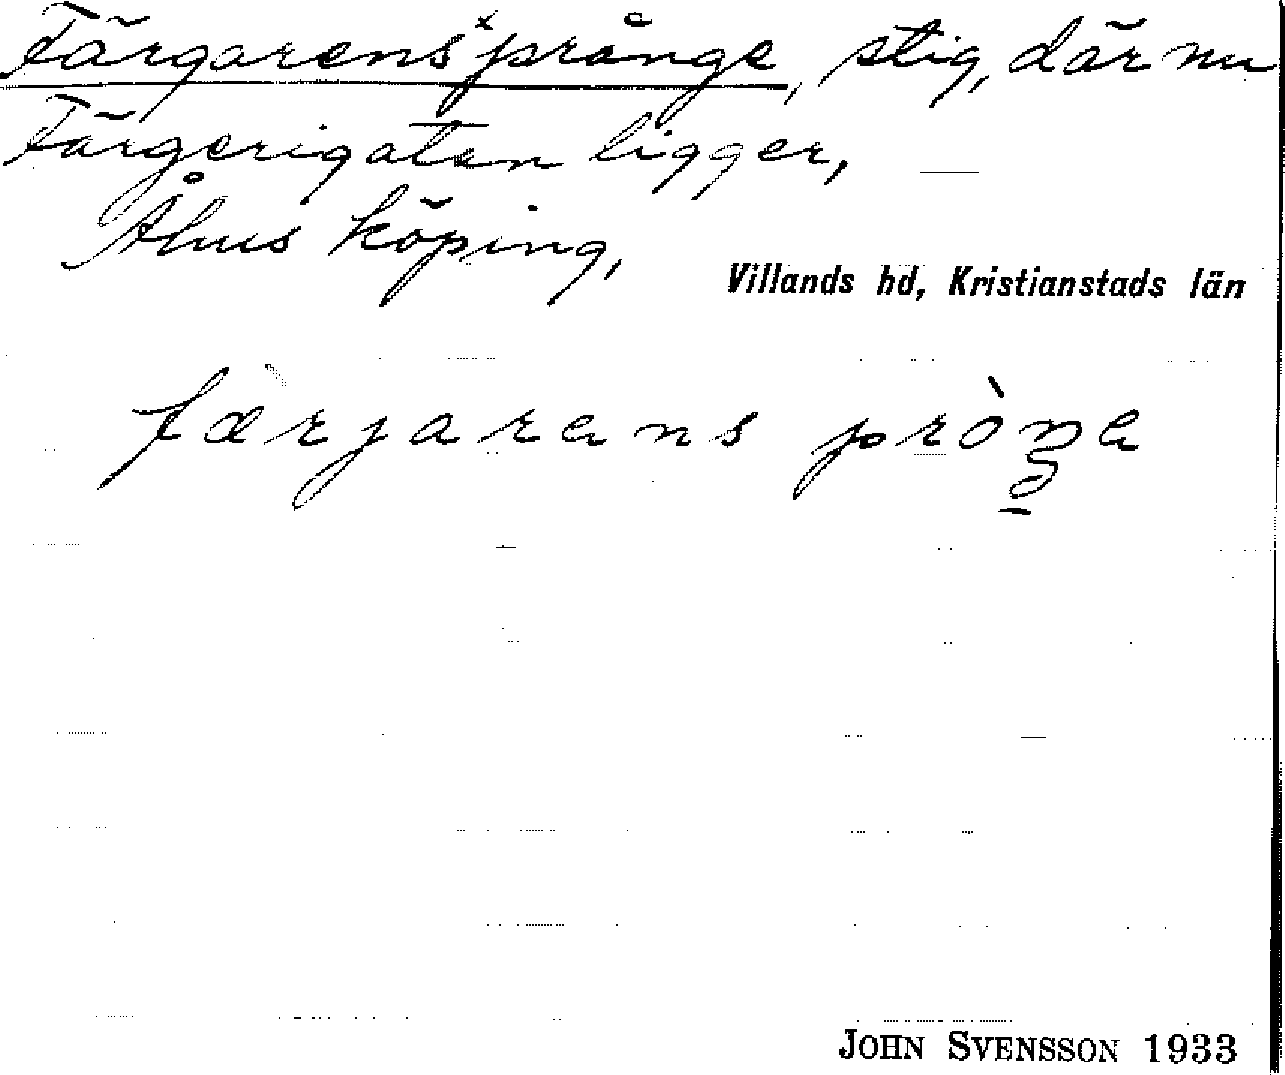 Färgarens˟prånge, stig, där nu
Färgerigatan ligger,
Åhus köping,
Villands hd, Kristianstads län
færjarens pròŋa
JOHN SVENSSON 1933